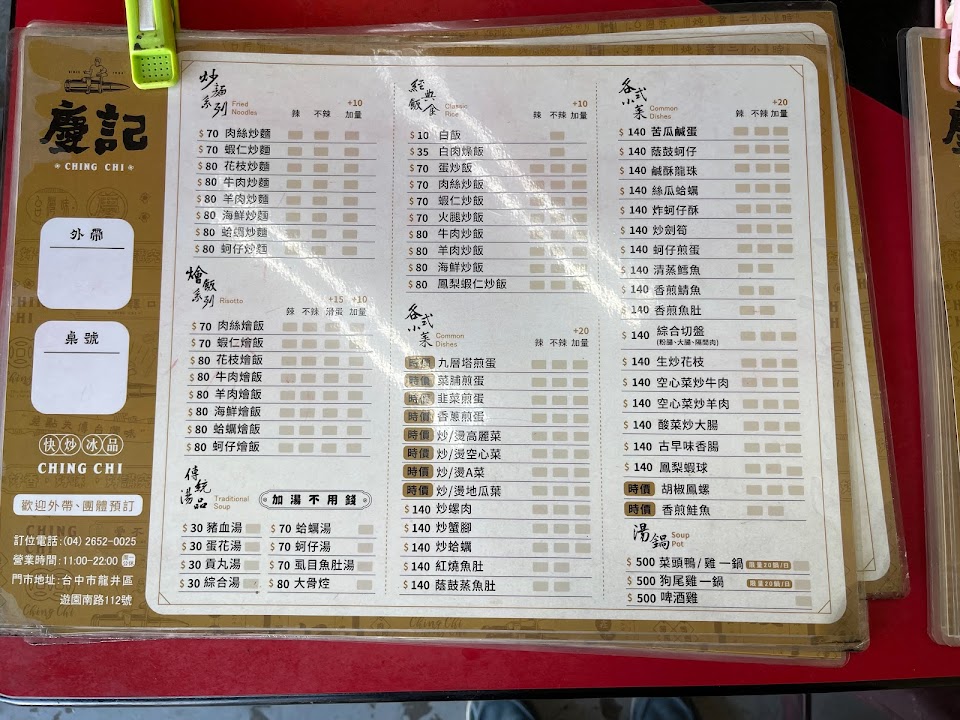 慶記
CHING CHI
外帶
桌號
快炒冰品
CHING CHI
歡迎外帶、團體預訂
訂位電話:(04) 2652-0025
營業時間:11:00-22:00
門市地址:台中市龍井區
遊園南路112號
炒麵系列 Fried Noodles
辣 不辣 +10 加量
$70 肉絲炒麵
$70 蝦仁炒麵
$80 花枝炒麵
$80 牛肉炒麵
$80 羊肉炒麵
$80 海鮮炒麵
$80 蛤蠣炒麵
$80 蚵仔炒麵
燴飯系列 Risotto
辣 不辣 +15 滑蛋 +10 加量
$70 肉絲燴飯
$70 蝦仁燴飯
$80 花枝燴飯
$80 牛肉燴飯
$80 羊肉燴飯
$80 海鮮燴飯
$80 蛤蠣燴飯
$80 蚵仔燴飯
傳統湯品 Traditional Soup
加湯不用錢
$30 豬血湯
$30 蛋花湯
$30 貢丸湯
$30 綜合湯
$70 蛤蠣湯
$70 蚵仔湯
$70 虱目魚肚湯
$80 大骨焢
經典飯食 Classic Rice
辣 不辣 +10 加量
$10 白飯
$35 白肉燥飯
$70 蛋炒飯
$70 肉絲炒飯
$70 蝦仁炒飯
$70 火腿炒飯
$80 牛肉炒飯
$80 羊肉炒飯
$80 海鮮炒飯
$80 鳳梨蝦仁炒飯
各式小菜 Common Dishes
辣 不辣 +20 加量
時價 九層塔煎蛋
時價 菜脯煎蛋
時價 韭菜煎蛋
時價 香蔥煎蛋
時價 炒/燙高麗菜
時價 炒/燙空心菜
時價 炒/燙A菜
時價 炒/燙地瓜葉
$140 炒螺肉
$140 炒蟹腳
$140 炒蛤蠣
$140 紅燒魚肚
$140 蔭鼓蒸魚肚
各式小菜 Common Dishes
辣 不辣 +20 加量
$140 苦瓜鹹蛋
$140 蔭鼓蚵仔
$140 鹹酥龍珠
$140 絲瓜蛤蠣
$140 炸蚵仔酥
$140 炒劍筍
$140 蚵仔煎蛋
$140 清蒸鱈魚
$140 香煎鯖魚
$140 香煎魚肚
$140 綜合切盤
(粉腸、大腸、隔間肉)
$140 生炒花枝
$140 空心菜炒牛肉
$140 空心菜炒羊肉
$140 酸菜炒大腸
$140 古早味香腸
$140 鳳梨蝦球
時價 胡椒鳳螺
時價 香煎鮭魚
湯鍋 Soup Pot
$500 菜頭鴨/雞 一鍋 限量20鍋/日
$500 狗尾雞 一鍋 限量20鍋/日
$500 啤酒雞